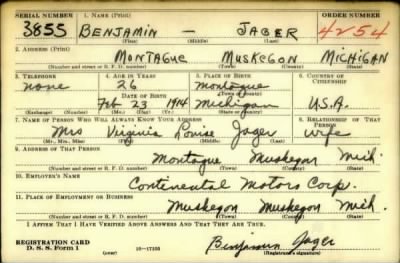 SERIAL NUMBER 1. NAME (Print) ORDER NUMBER
3855 BENJAMIN – JAGER 4254
(First) (Middle) (Last)
2. ADDRESS (Print)
MONTAGUE MUSKEGON MICHIGAN
(Number and street or R. F. D. number) (Town) (County) (State)
3. TELEPHONE 4. AGE IN YEARS 5. PLACE OF BIRTH 6. COUNTRY OF CITIZENSHIP
none 26 Montague
DATE OF BIRTH (Town or county)
Feb 23 1914 Michigan U.S.A.
(Exchange) (Number) (Mo.) (Day) (Yr.) (State or country)
7. NAME OF PERSON WHO WILL ALWAYS KNOW YOUR ADDRESS 8. RELATIONSHIP OF THAT PERSON
Mrs Virginia Louise Jager wife
(Mr., Mrs., Miss) (First) (Middle) (Last)
9. ADDRESS OF THAT PERSON
Montague Muskegon Mich.
(Number and street or R. F. D. number) (Town) (County) (State)
10. EMPLOYER'S NAME
Continental Motors Corp.
11. PLACE OF EMPLOYMENT OR BUSINESS
Muskegon Muskegon Mich.
(Number and street or R. F. D. number) (Town) (County) (State)
I AFFIRM THAT I HAVE VERIFIED ABOVE ANSWERS AND THAT THEY ARE TRUE.
REGISTRATION CARD
D. S. S. Form 1 16—17105 Benjamin Jager
(Registrant's signature)